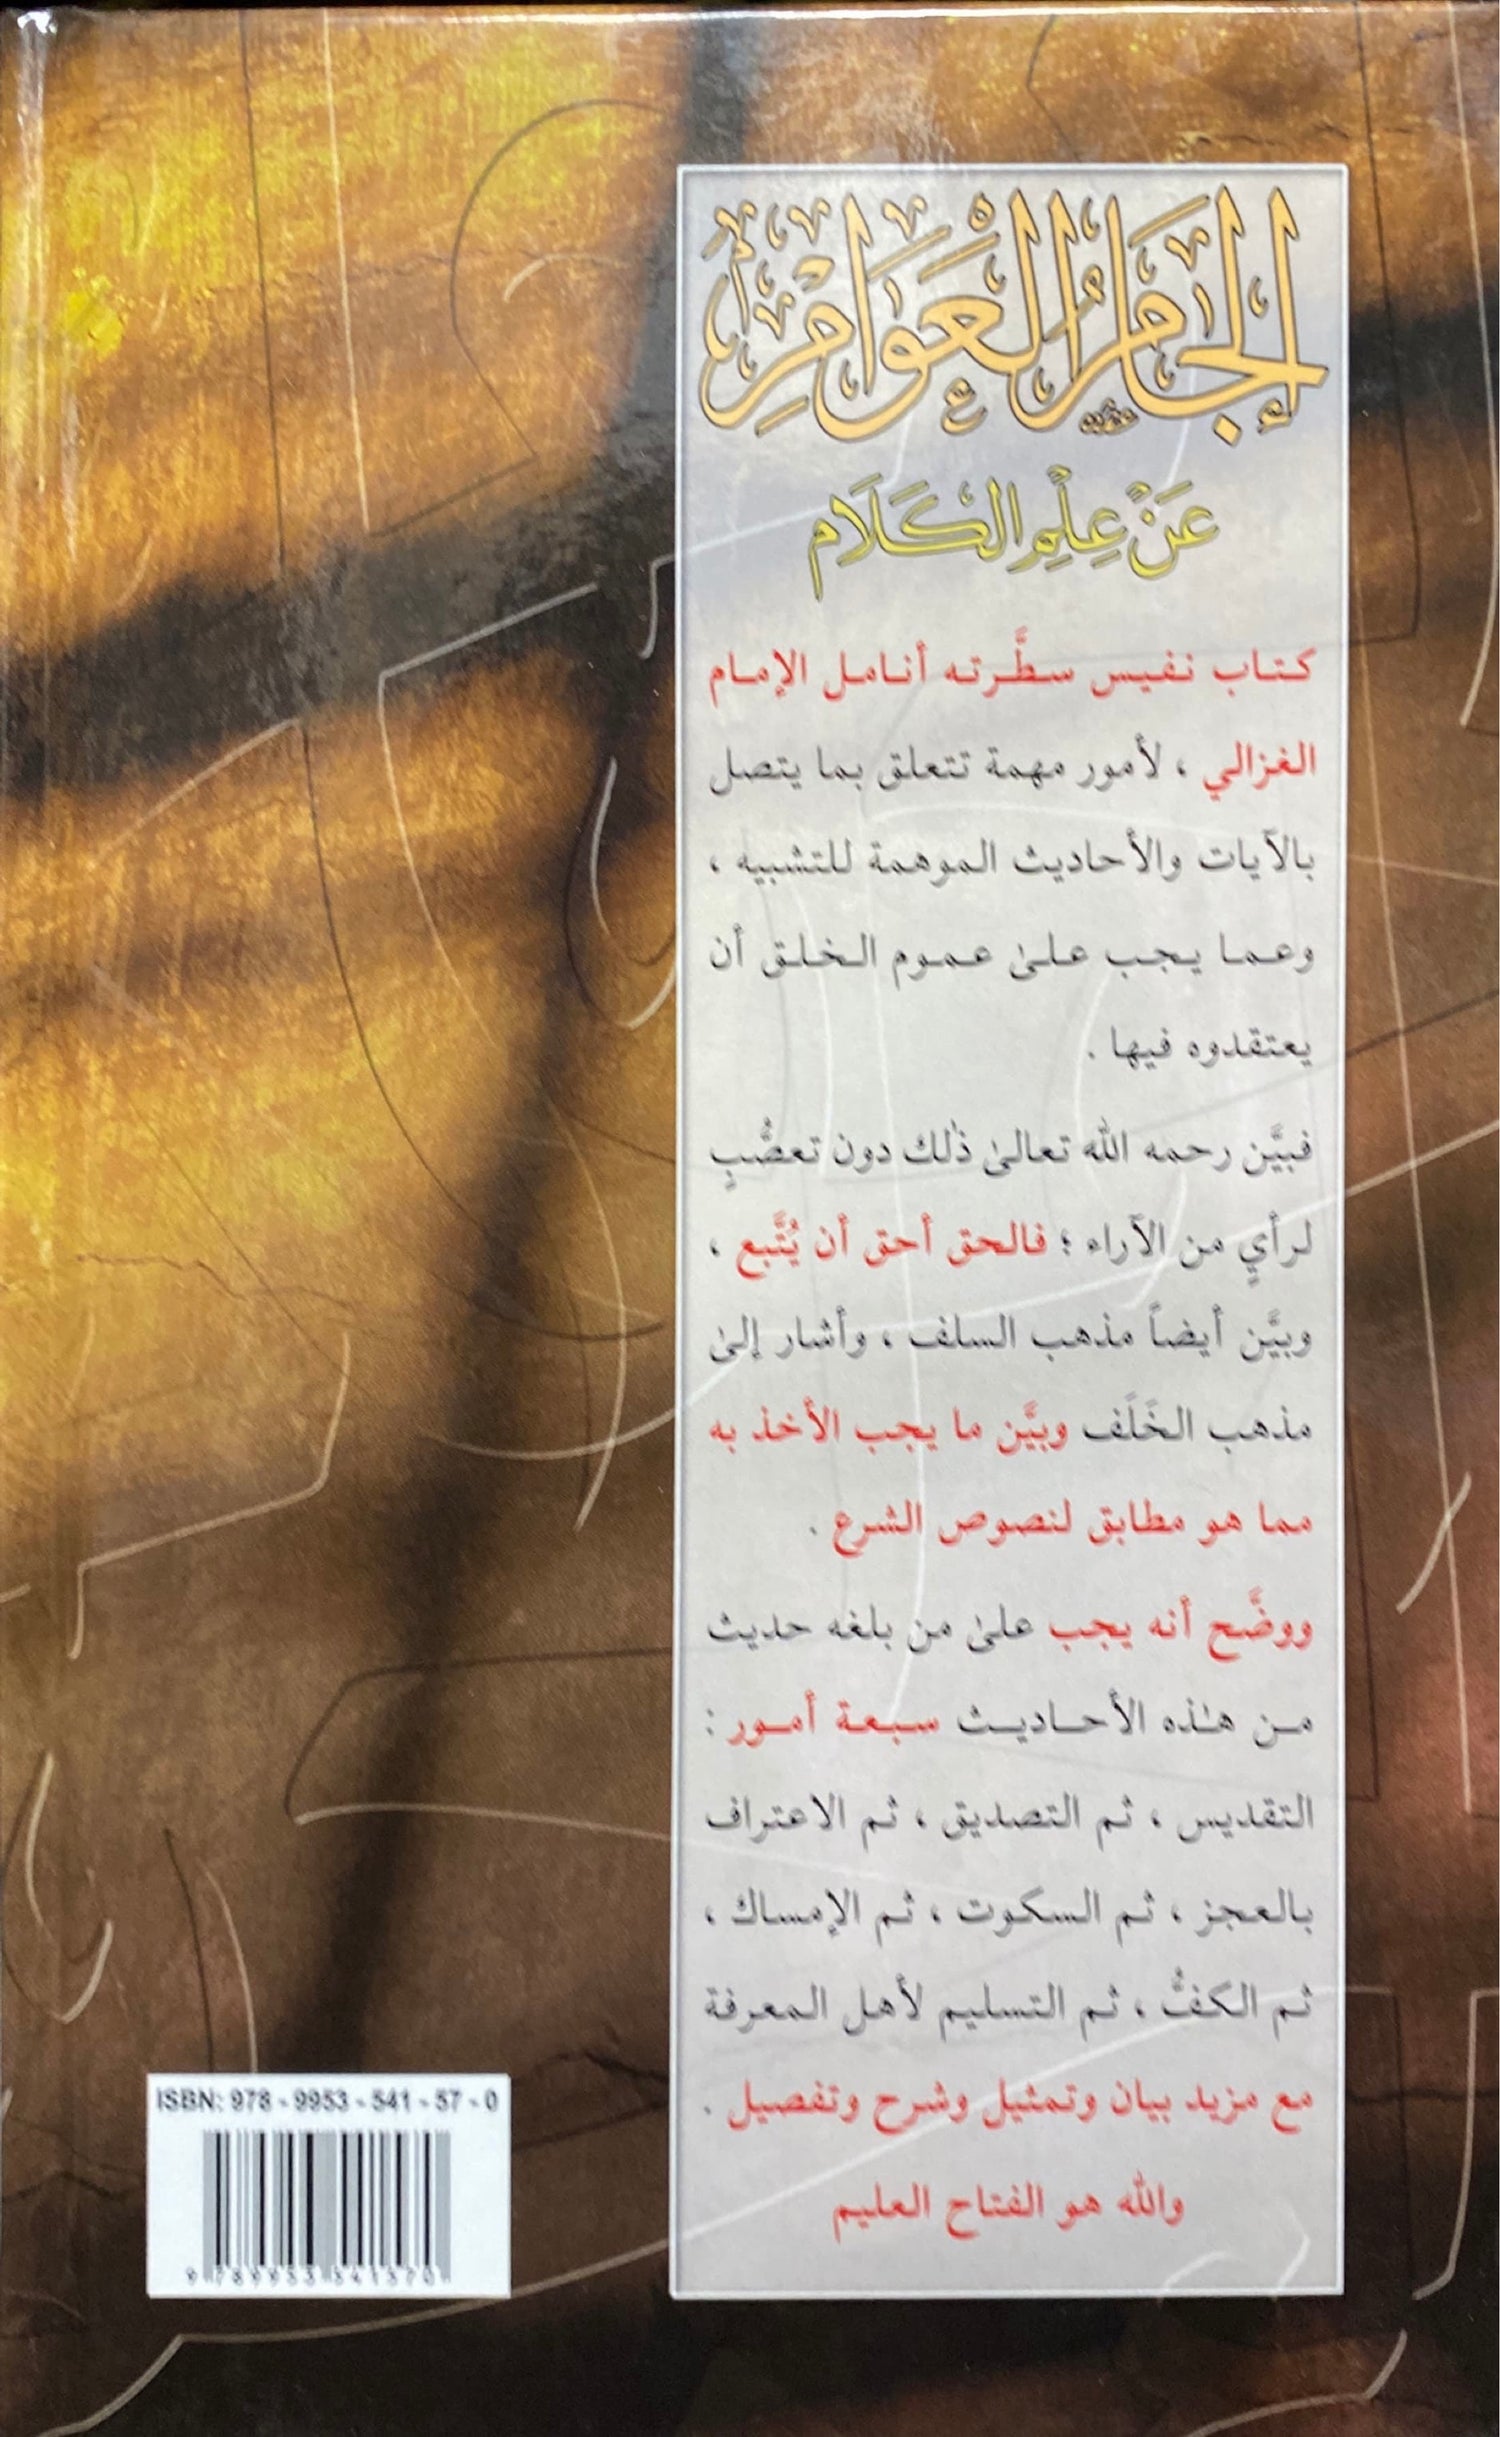 إلجام العوام
عَنْ عِلْمِ الكَلَام
كتاب نفيس سطَّرته أنامل الإمام
الغزالي ، لأمور مهمة تتعلق بما يتصل
بالآيات والأحاديث الموهمة للتشبيه ،
وعما يجب علىٰ عموم الخلق أن
يعتقدوه فيها .
فبيَّن رحمه الله تعالىٰ ذٰلك دون تعصُّبٍ
لرأيٍ من الآراء ؛ فالحق أحق أن يُتَّبع ،
وبيَّن أيضاً مذهب السلف ، وأشار إلىٰ
مذهب الخَلَف وبيَّن ما يجب الأخذ به
مما هو مطابق لنصوص الشرع .
ووضَّح أنه يجب علىٰ من بلغه حديث
من هـٰذه الأحاديث سبعة أمور :
التقديس ، ثم التصديق ، ثم الاعتراف
بالعجز ، ثم السكوت ، ثم الإمساك ،
ثم الكفُّ ، ثم التسليم لأهل المعرفة
مع مزيد بيان وتمثيل وشرح وتفصيل .
والله هو الفتاح العليم
ISBN: 978 - 9953 - 541 - 57 - 0
9 789953 541570